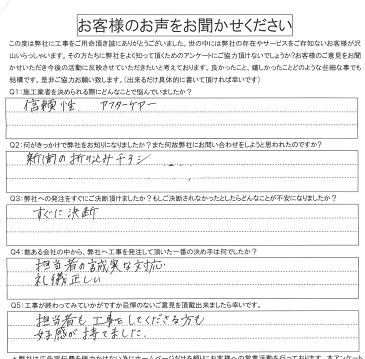 お客様のお声をお聞かせください
この度は弊社に工事をご用命頂き誠にありがとうございました。世の中には弊社の存在やサービスをご存知ないお客様が沢
山いらっしゃいます。その方たちに弊社をよく知って頂くためのアンケートにご協力頂けないでしょうか?お客様のご意見をお聞
かせいただき今後の活動に反映させていただきたいと考えております。良かったこと、嬉しかったことどのような些細な事でも
結構です。是非ご協力お願い致します。(出来るだけ具体的に書いて頂ければ幸いです)
Q1:施工業者を決められる際にどんなことで悩んでいましたか?
信頼性 アフターケアー
Q2:何がきっかけで弊社をお知りになりましたか?また何故弊社にお問い合わせをしようと思われたのですか?
新聞の折り込みチラシ
Q3:弊社への発注をすぐにご決断頂けましたか?もしご決断されなかったとしたらどんなことが不安になりましたか?
すぐに決断
Q4:数ある会社の中から、弊社へ工事を発注して頂いた一番の決め手は何でしたか?
担当者の誠実な対応
礼儀正しい
Q5:工事が終わってみていかがですか忌憚のないご意見を頂戴出来ましたら幸いです。
担当者も工事をしてくださる方も
好感が持てました.